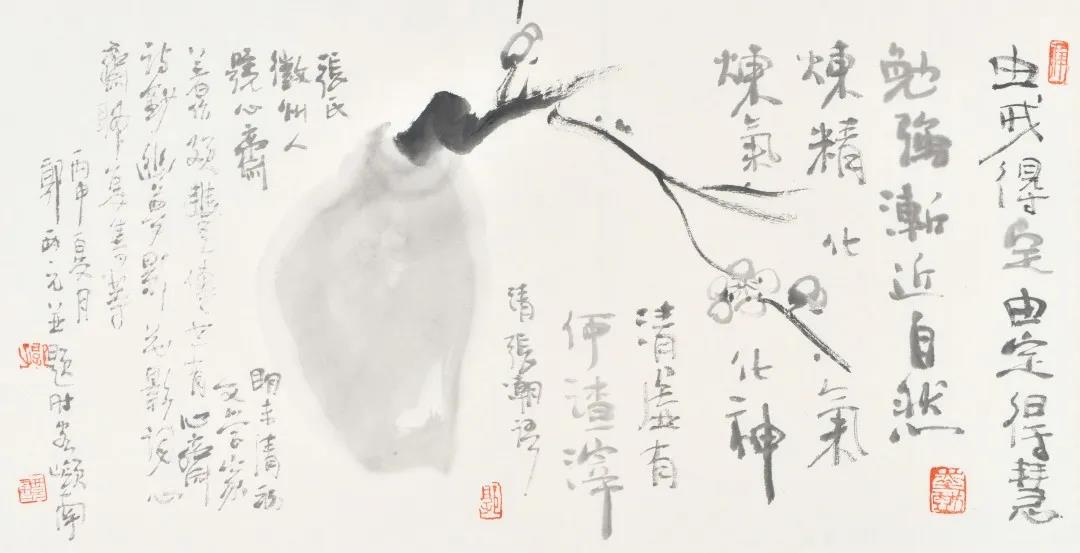 由戒得定由定得慧
勉強漸近自然
煉精化氣
煉氣化神
清虛有
何渣滓
清張潮語
張氏
徽州人
號心齋
明末清初
文學家
頗豐 傳世有心齋
詩鈔幽夢影花影詞心
齋聊復集等
丙申夏月
郭西元並題時客嶺南